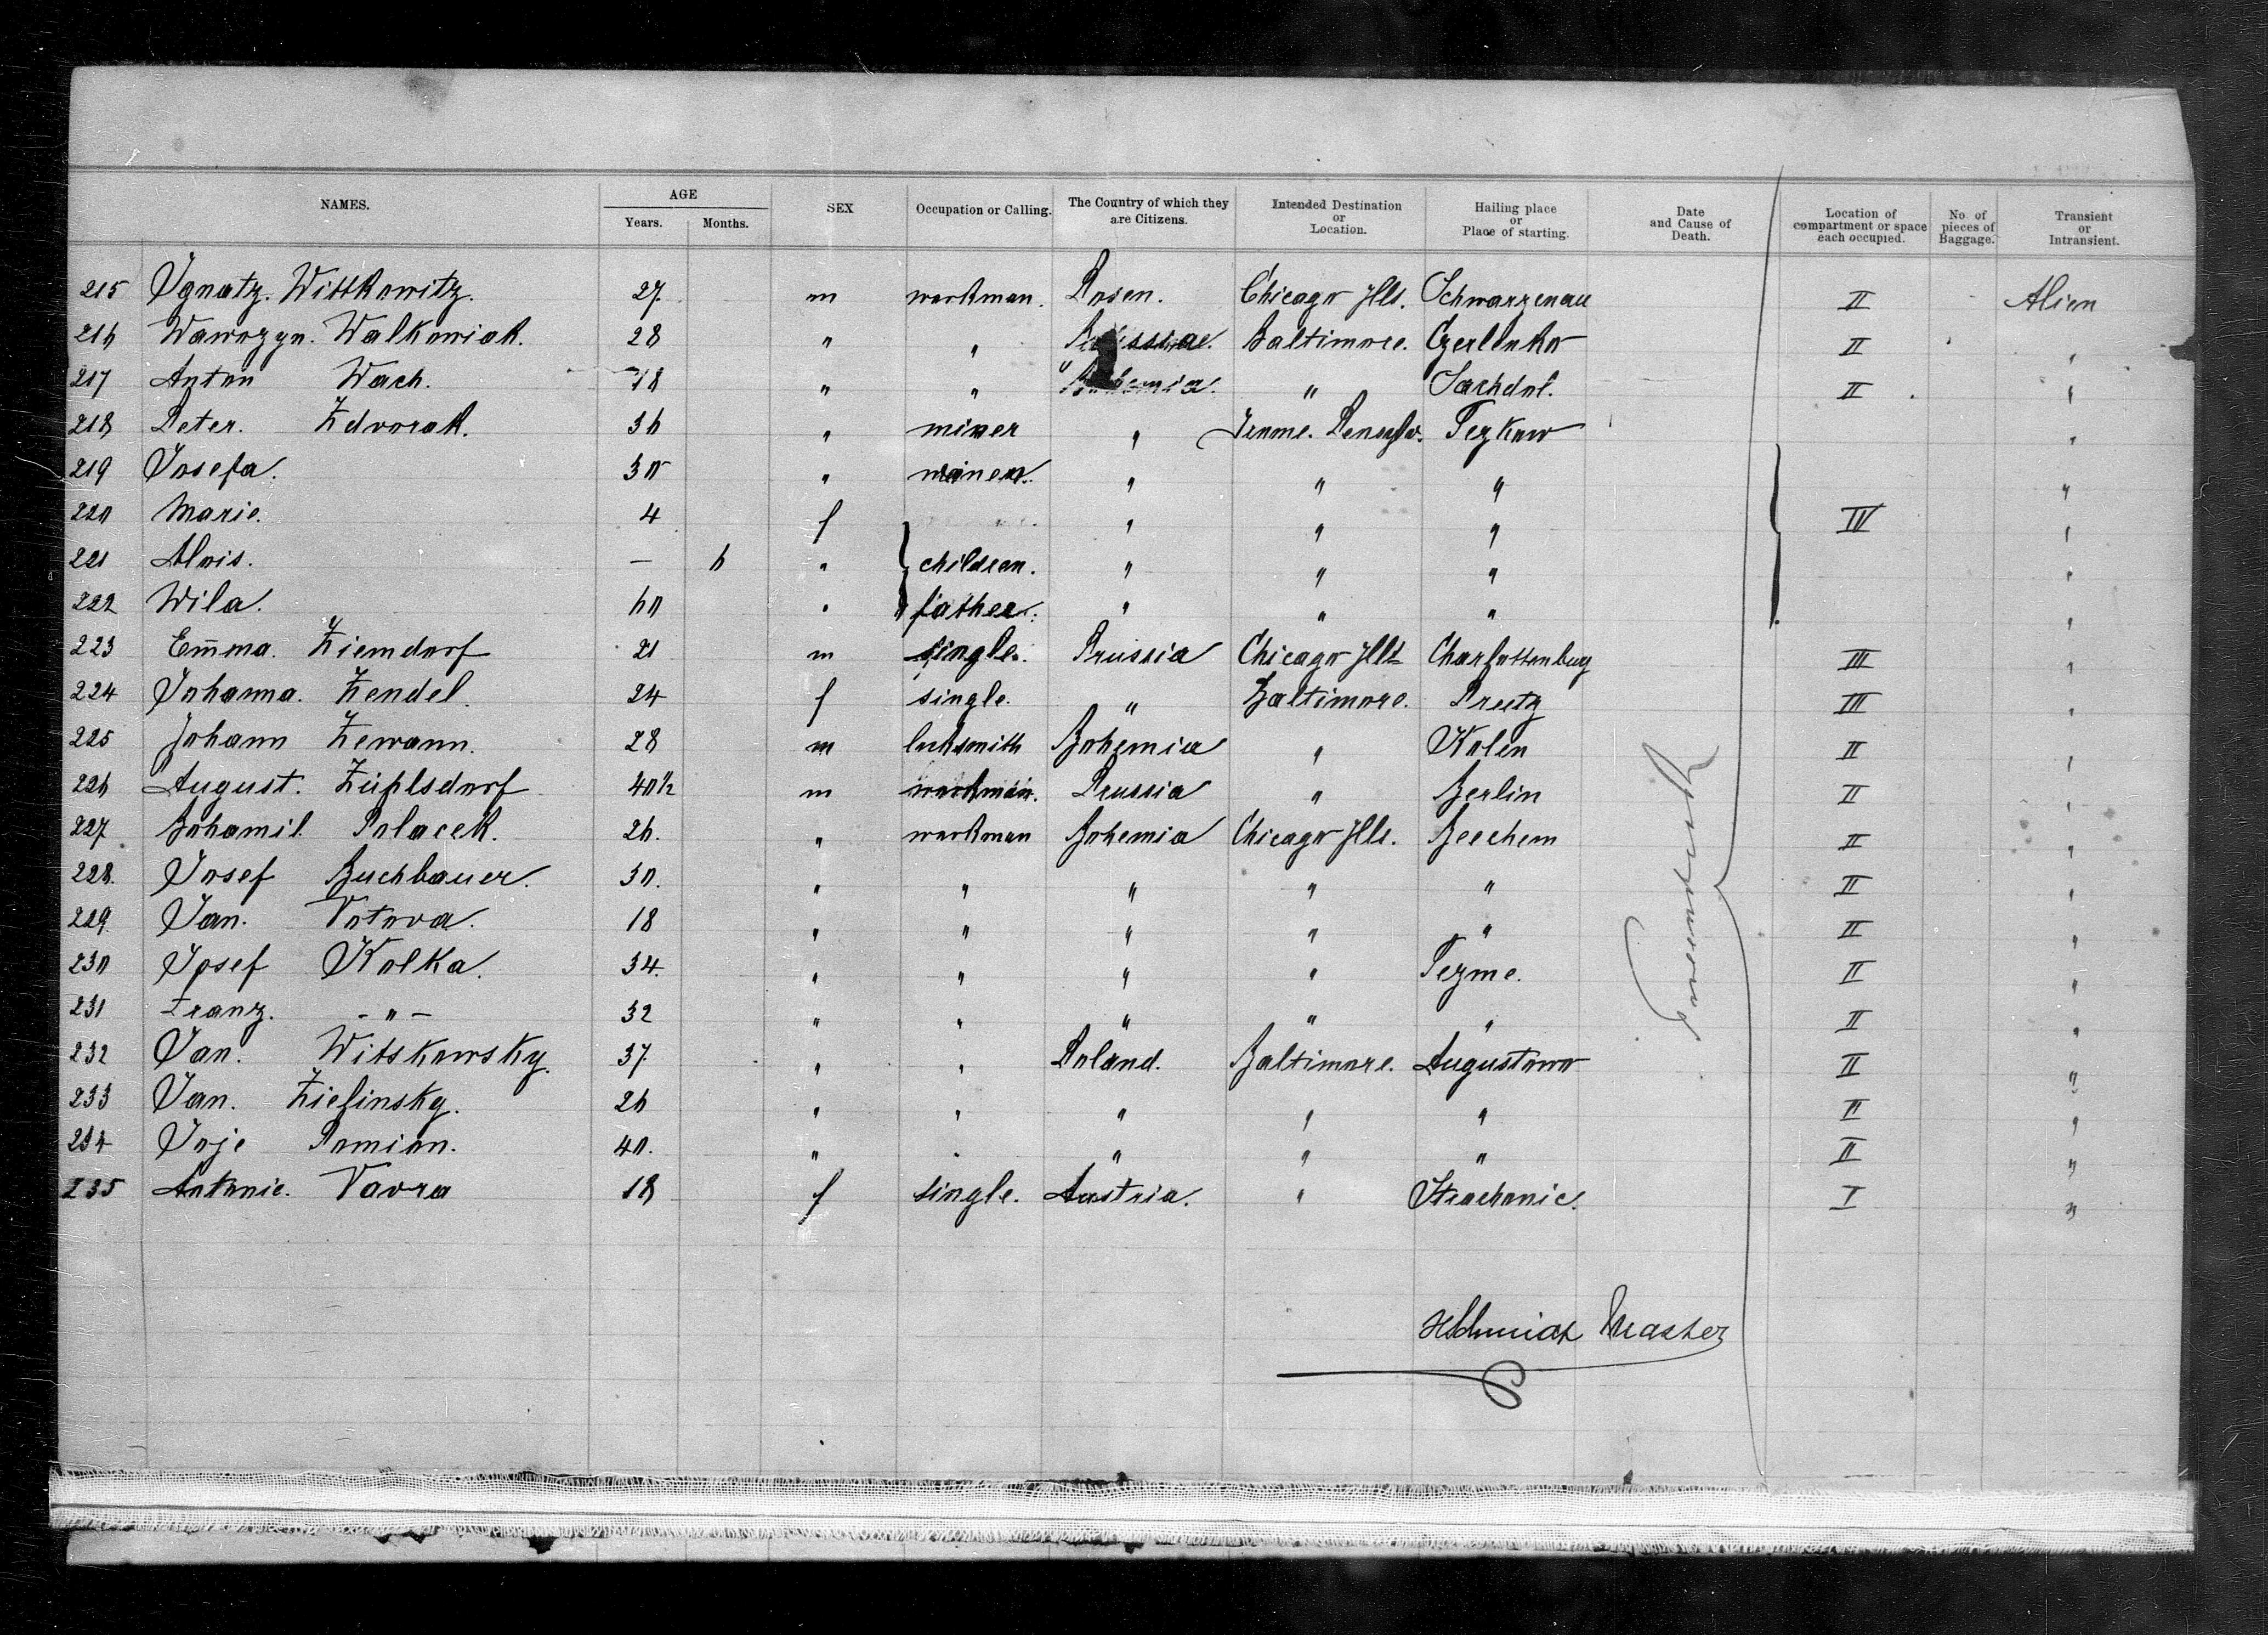 NAMES. AGE Years. Months. SEX Occupation or Calling. The Country of which they are Citizens. Intended Destination or Location. Hailing place or Place of starting. Date and Cause of Death. Location of compartment or space each occupied. No. of pieces of Baggage. Transient or Intransient.
215 Ignatz. Wittkowitz. 27. m workman. Posen. Chicago Ills. Schwarzenau II Alien
216 Wawrzyn. Walkowiak. 28 " " Baltimore. II "
217 Anton Wach. 18 " " " Bohemia. " II "
218 Peter. Zdvorak. 36 " miner " Tezkow "
219 Josefa. 30 " " " " "
220 Marie. 4 f " " " IV "
221 Alois. — 6 " children. " " " "
222 Wila. 60 " father. " " " "
223 Em̄ma. Ziemdorf 21 m single. Prussia Chicago Ills Charlottenburg III "
224 Johanna. Zendel. 24 f single. " Baltimore. Preetz III "
225 Johann Zemann. 28 m locksmith Bohemia " Kolin II "
226 August. Zühlsdorf 40½ m workman. Prussia " Berlin II "
227 Bohamil Polacek. 26. " workman Bohemia Chicago Ills. Beechem II "
228. Josef Buchbauer. 30. " " " " " II "
229 Jan. Votova. 18 " " " " " II "
230 Josef Kolka. 34. " " " " Tezme. II "
231 Franz. - " - 32 " " " " " II "
232 Jan. Witskowsky. 37. " " Poland. Baltimore. Augustowo II "
233 Jan. Zielinsky. 26 " " " " " II "
234 Joje Pomian. 40. " " " " " II "
235 Antonie. Vavra 18 f single. Austria. " Strachonic. I "
Master